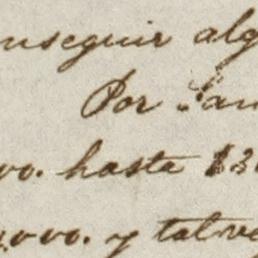 nseguir alg
Por
00. hasta 13
000. y talve